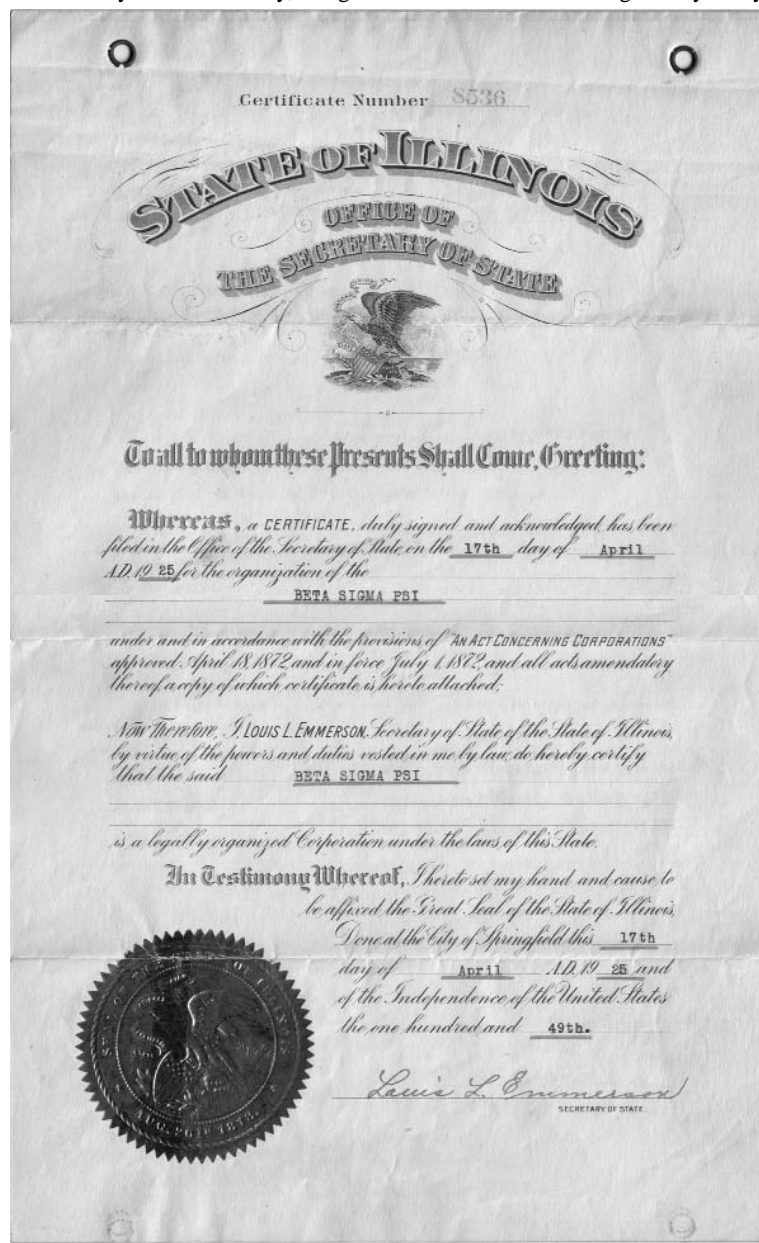 Certificate Number 8536
STATE OF ILLINOIS
OFFICE OF
THE SECRETARY OF STATE
To all to whom these Presents Shall Come, Greeting:
Whereas, a CERTIFICATE, duly signed and acknowledged, has been
filed in the Office of the Secretary of State, on the 17th day of April
A.D. 19 25 for the organization of the
BETA SIGMA PSI
under and in accordance with the provisions of "AN ACT CONCERNING CORPORATIONS"
approved April 18, 1872, and in force July 1, 1872, and all acts amendatory
thereof, a copy of which certificate is hereto attached;
Now Therefore, I, LOUIS L. EMMERSON, Secretary of State of the State of Illinois,
by virtue of the powers and duties vested in me by law, do hereby certify
that the said BETA SIGMA PSI
is a legally organized Corporation under the laws of this State.
In Testimony Whereof, I hereto set my hand and cause to
be affixed the Great Seal of the State of Illinois,
Done at the City of Springfield this 17th
day of April A.D. 19 25 and
of the Independence of the United States
the one hundred and 49th.
Louis L. Emmerson
SECRETARY OF STATE.
SEAL OF THE STATE OF ILLINOIS
AUG. 26TH 1818